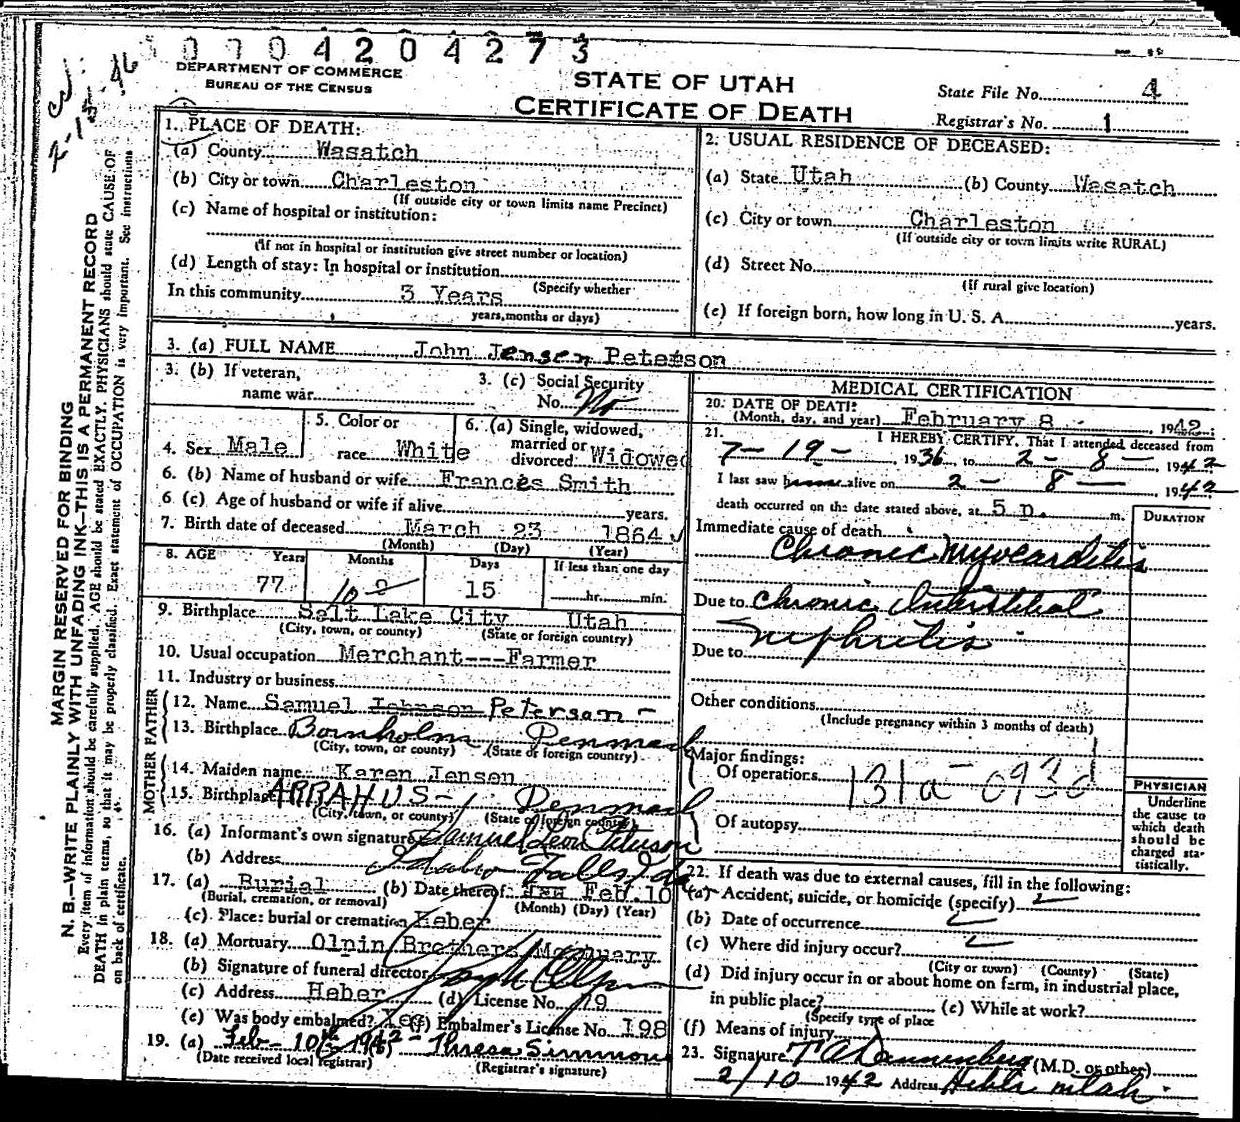 0704204273
DEPARTMENT OF COMMERCE
BUREAU OF THE CENSUS
STATE OF UTAH
CERTIFICATE OF DEATH
State File No. 4
Registrar's No. 1
MARGIN RESERVED FOR BINDING
N. B.—WRITE PLAINLY WITH UNFADING INK—THIS IS A PERMANENT RECORD
Every item of information should be carefully supplied. AGE should be stated EXACTLY. PHYSICIANS should state CAUSE OF
DEATH in plain terms, so that it may be properly classified. Exact statement of OCCUPATION is very important. See instructions
on back of certificate.
1. PLACE OF DEATH:
(a) County Wasatch
(b) City or town Charleston
(If outside city or town limits name Precinct)
(c) Name of hospital or institution:
(If not in hospital or institution give street number or location)
(d) Length of stay: In hospital or institution
(Specify whether
In this community 3 Years
years, months or days)
2. USUAL RESIDENCE OF DECEASED:
(a) State Utah (b) County Wasatch
(c) City or town Charleston
(If outside city or town limits write RURAL)
(d) Street No.
(If rural give location)
(e) If foreign born, how long in U. S. A. years.
3. (a) FULL NAME John Jensen Peterson
3. (b) If veteran,
name war
3. (c) Social Security
No. No
4. Sex Male
5. Color or
race White
6. (a) Single, widowed,
married or
divorced Widowed
6. (b) Name of husband or wife Frances Smith
6. (c) Age of husband or wife if alive years.
7. Birth date of deceased March 23 1864
(Month) (Day) (Year)
8. AGE Years Months Days If less than one day
77 10 9 15 hr. min.
9. Birthplace Salt Lake City Utah
(City, town, or county) (State or foreign country)
10. Usual occupation Merchant---Farmer
11. Industry or business
FATHER
12. Name Samuel Johnson Peterson
13. Birthplace Bornholm Denmark
(City, town, or county) (State or foreign country)
MOTHER
14. Maiden name Karen Jensen
15. Birthplace ARRAHUS Denmark
(City, town, or county) (State or foreign country)
16. (a) Informant's own signature Samuel Leon Peterson
(b) Address Idaho Falls Ida
17. (a) Burial (b) Date thereof Jan Feb. 10
(Burial, cremation, or removal) (Month) (Day) (Year)
(c) Place: burial or cremation Heber
18. (a) Mortuary Olpin Brothers Mortuary
(b) Signature of funeral director
(c) Address Heber (d) License No. 79
(e) Was body embalmed? Yes (f) Embalmer's License No. 198
19. (a) Feb - 10th 1942 Thresa Simmons
(Date received local registrar) (Registrar's signature)
MEDICAL CERTIFICATION
20. DATE OF DEATH:
(Month, day, and year) February 8 1942
21. I HEREBY CERTIFY, That I attended deceased from
7 - 19 - 1936, to 2 - 8 - 1942
I last saw him alive on 2 - 8 - 1942
death occurred on the date stated above, at 5 p. m.
DURATION
Immediate cause of death
Chronic Myocarditis
Due to Chronic Interstitial
nephritis
Due to
Other conditions
(Include pregnancy within 3 months of death)
Major findings:
Of operations 131a - 093d
Of autopsy
PHYSICIAN
Underline
the cause to
which death
should be
charged sta-
tistically.
22. If death was due to external causes, fill in the following:
(a) Accident, suicide, or homicide (specify)
(b) Date of occurrence
(c) Where did injury occur?
(City or town) (County) (State)
(d) Did injury occur in or about home on farm, in industrial place,
in public place? (e) While at work?
(Specify type of place
(f) Means of injury
23. Signature T A Dannenberg (M.D. or other)
2/10 1942 Address Heber Utah